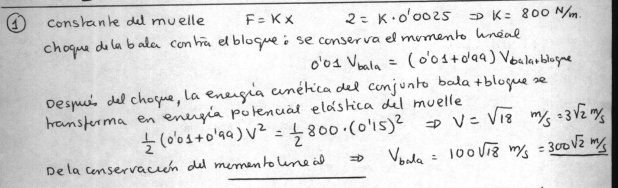 ① constante del muelle F = K x 2 = K · 0'0025 ⇒ K = 800 N/m.
choque de la bala contra el bloque : se conserva el momento lineal
0'01 Vbala = (0'01 + 0'99) Vbala+bloque
Después del choque, la energía cinética del conjunto bala + bloque se
transforma en energía potencial elástica del muelle
1/2 (0'01 + 0'99) V² = 1/2 800 · (0'15)² ⇒ V = √18 m/s = 3√2 m/s
De la conservación del momento lineal ⇒ Vbala = 100√18 m/s = 300√2 m/s